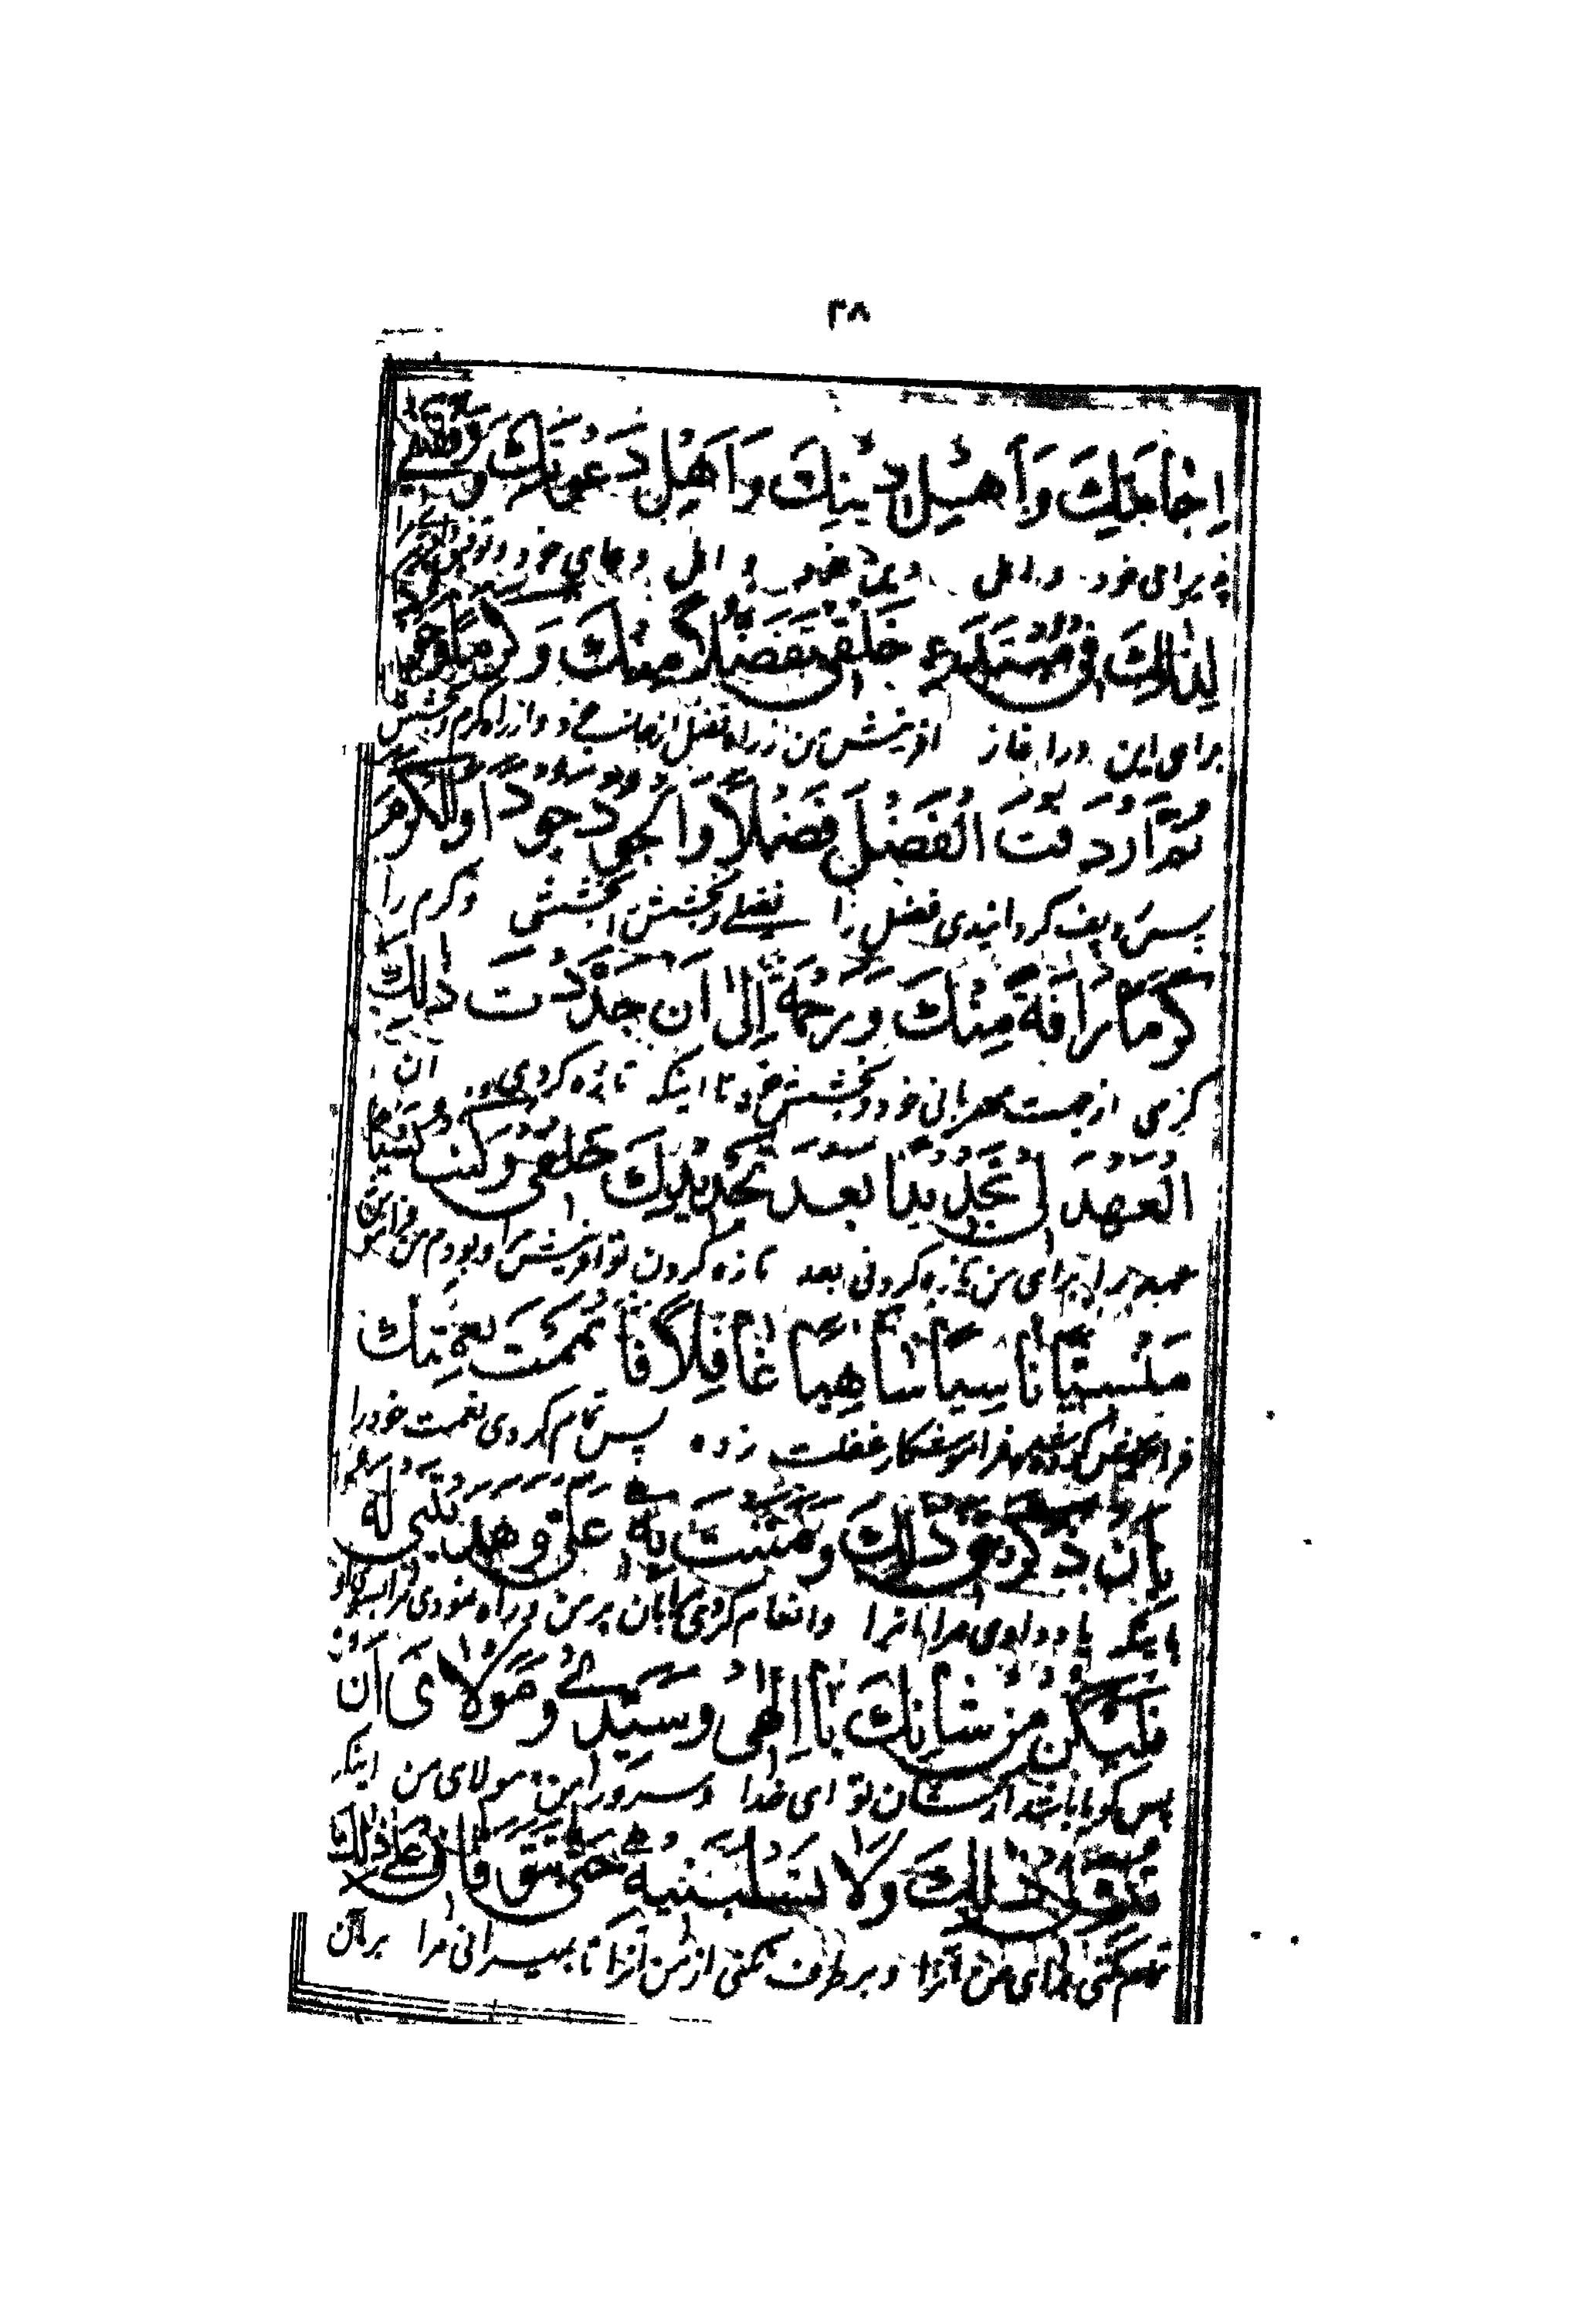 ٣٨
اِجَابَتِكَ وَاَهْلِ دِيْنِكَ وَاَهْلِ دَعْوَتِكَ وَوَفَّقْتَنِي
برای خود و اهل دین خود و اهل دعای خود و توفیق
لِذٰلِكَ فِي مُبْتَدَءِ خَلْقِي تَفَضُّلًا مِنْكَ وَكَرَمًا وَجُودًا
برای این در اغاز افرینش من از راه تفضل از جانب خود و از راه کرم و بخشش
ثُمَّ اَرْدَفْتَ الْفَضْلَ فَضْلًا وَالْجُودَ جُودًا وَالْكَرَمَ
پس ردیف کردانیدی فضل را فضلے و بخشش را بخششی و کرم را
كَرَمًا رَاْفَةً مِنْكَ وَرَحْمَةً اِلٰى اَنْ جَدَّدْتَ ذٰلِكَ
کرمی از جهت مهربانی خود و بخشش خود تا اینکه تازه کردی ان
الْعَهْدَ لِي تَجْدِيدًا بَعْدَ تَجْدِيْدِكَ خَلْقِي وَكُنْتُ نَسْيًا
عهد را برای من تازه کردنی بعد تازه کردن تو افرینش مرا و بودم من
مَنْسِيًّا نَاسِيًا سَاهِيًا غَافِلًا فَاَتْمَمْتَ نِعْمَتَكَ
فراموشکار غفلت زده پس تمام کردی نعمت خود را
بِاَنْ ذَكَّرْتَنِي ذٰلِكَ وَمَنَنْتَ بِهِ عَلَيَّ وَهَدَيْتَنِي لَهُ
باینکه یاد دادی مرا انرا و انعام کردی بان بر من و راه نمودی مرا بسوی او
فَلْيَكُنْ مِنْ شَاْنِكَ يَا اِلٰهِي وَسَيِّدِي وَمَوْلَايَ اَنْ
پس باشد از شان تو ای خدا و سرور من و مولای من اینکه
تُتِمَّ لِي ذٰلِكَ وَلَا تَسْلُبَنِيهِ حَتّٰى فَانِي عَلٰى ذٰلِكَ
تمام کنی برای من انرا و بر طرف نکنی از من انرا تا بمیرانی مرا بر ان